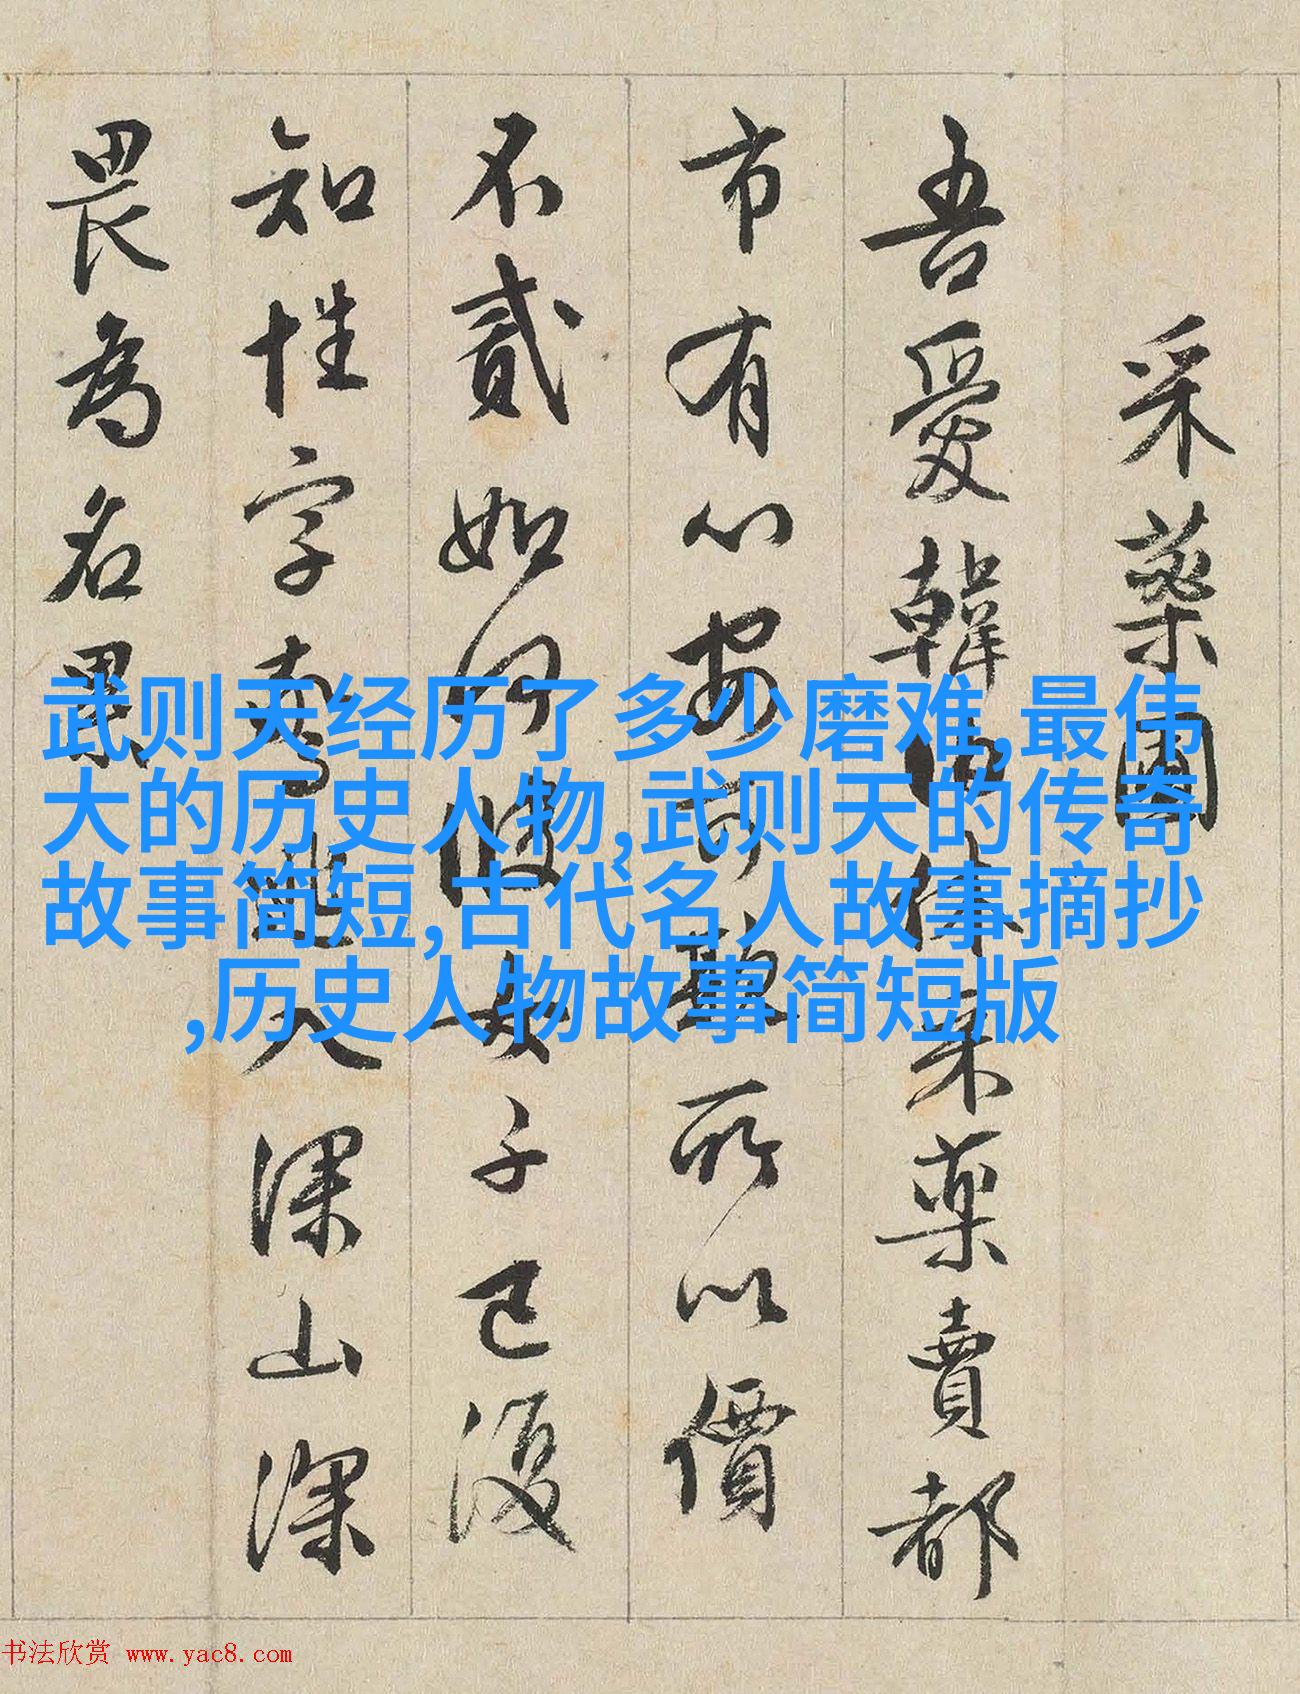 采藥圃
吾愛韓伯休采藥賣都
市有心安可所以價
不貳如何女子已復
知性字入深山深
畏為名累
武则天经历了多少磨难,最伟
大的历史人物,武则天的传奇
故事简短,古代名人故事摘抄
,历史人物故事简短版
书法欣赏 www.yac8.com